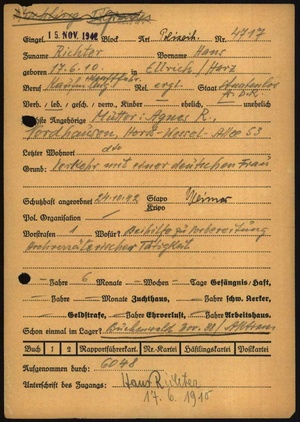 Eingel. 15. NOV. 1942 Block Art Polnisch. Nr. 4717
Zuname Richter Vorname Hans
geboren 17.6.10. in Ellrich/Harz
Beruf Rel. ergl. Staat
Verh., led., gesch., verw., Kinder — ehelich, — unehelich
Nächste Angehörige Mutter: Agnes R.,
Nordhausen, Horst-Wessel-Allee 53
Letzter Wohnort dto
Grund: Verkehr mit einer deutschen Frau
Schutzhaft angeordnet 24.10.42 Stapo Kripo Weimar
Pol. Organisation
Vorstrafen 1 Wofür? Beihilfe zu Vorbereitung
hochverräterischer Tätigkeit
— Jahre 6 Monate — Wochen — Tage Gefängnis/Haft,
— Jahre — Monate Zuchthaus, — Jahre schw. Kerker,
Geldstrafe, — Jahre Ehrverlust, — Jahre Arbeitshaus.
Schon einmal im Lager? Buchenwald
Buch 1 2 Rapportführerkart. Nr.-Kartei Häftlingskartei Postkartei
Aufgenommen durch: 6048
Unterschrift des Zugangs: Hans Richter
17.6.1910